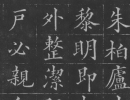 朱柏廬
黎明即
外整潔
戶必親